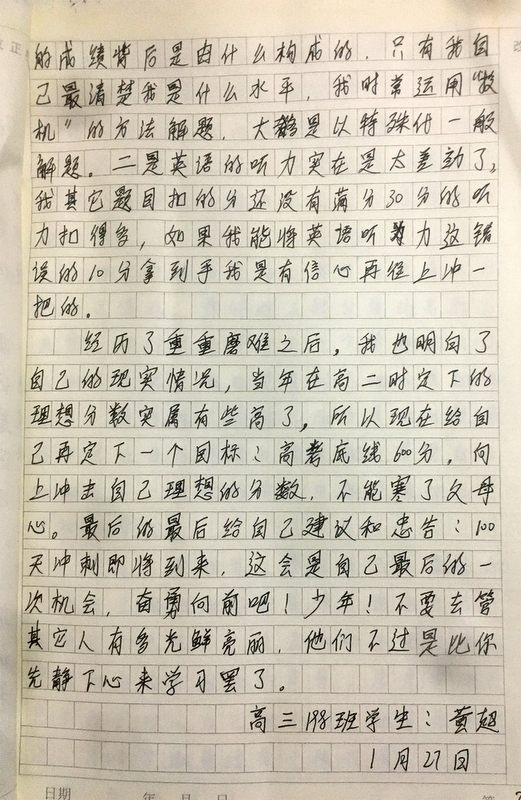 的成绩背后是由什么构成的，只有我自
己最清楚我是什么水平，我时常运用“投
机”的方法解题，大都是以特殊代一般
解题。二是英语的听力实在是太差劲了，
我其它题目扣的分还没有满分30分的听
力扣得多，如果我能将英语听力这错
误的10分拿到手我是有信心再往上冲一
把的。
经历了重重磨难之后，我也明白了
自己的现实情况，当年在高二时定下的
理想分数实属有些高了，所以现在给自
己再定下一个目标：高考底线600分，向
上冲击自己理想的分数，不能寒了父母
心。最后的最后给自己建议和忠告：100
天冲刺即将到来，这会是自己最后的一
次机会，奋勇向前吧！少年！不要去管
其它人有多光鲜亮丽，他们不过是比你
先静下心来学习罢了。
高三199班学生：黄超
1月27日
日期 年 月 日 第